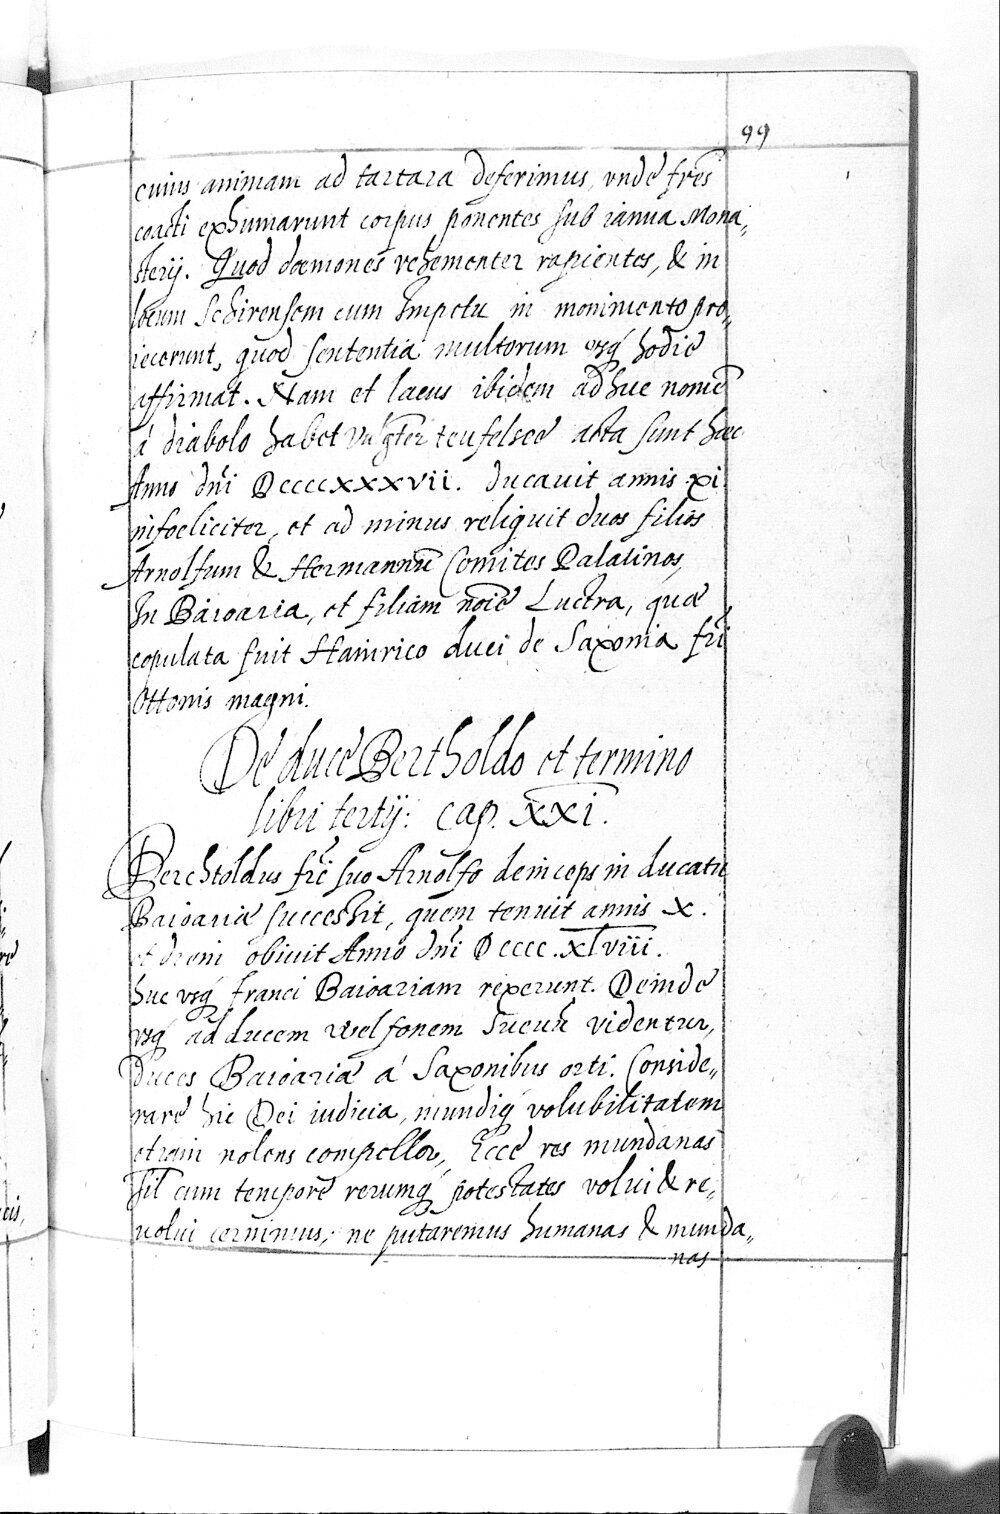 99
cuius animam ad tartara deferimus, vnde frēs
coacti exhumarunt corpus ponentes sub ianua Mona„
sterij. Quod dœmones vehementer rapientes, & in
locum Schirensem cum Impetu in monimento pro„
iecerunt, quod sententia multorum vsq́ hodie
affirmat. Nam et lacus ibidem adhuc nomē
á diabolo habet vulgr̄ter teufelsee acta sunt hæc
Anno dn̄i DccccxxxvII. ducauit annis xi
infoeliciter, et ad minus reliquit duos filios
Arnolfum & Hermannū Comites Palatinos,
In Baioaria, et filiam nōie Luctra, quæ
copulata fuit Hainrico duci de Saxonia fr̄i
Ottonis magni.
De duce Bertholdo et termino
libri tertij: cap. XXI.
Berchtoldus fr̄e suo Arnolfo deinceps in ducatu
Baioariæ successit, quem tenuit annis X.
et obiuit Anno dn̄i Dcccc.xlviii.
huc vsq́ franci Baioariam rexerunt. Deinde
vsq́ ad ducem Welfonem videntur,
Duces Baioariæ á Saxonibus orti. Conside„
rare hic Dei iudicia, mundiq́ volubilitatem
etiam nolens compellor, Ecce res mundanas
sil̄ cum tempore rerumq́ potestates volui & re„
uolui cernimus, ne putaremus humanas & munda„
nas